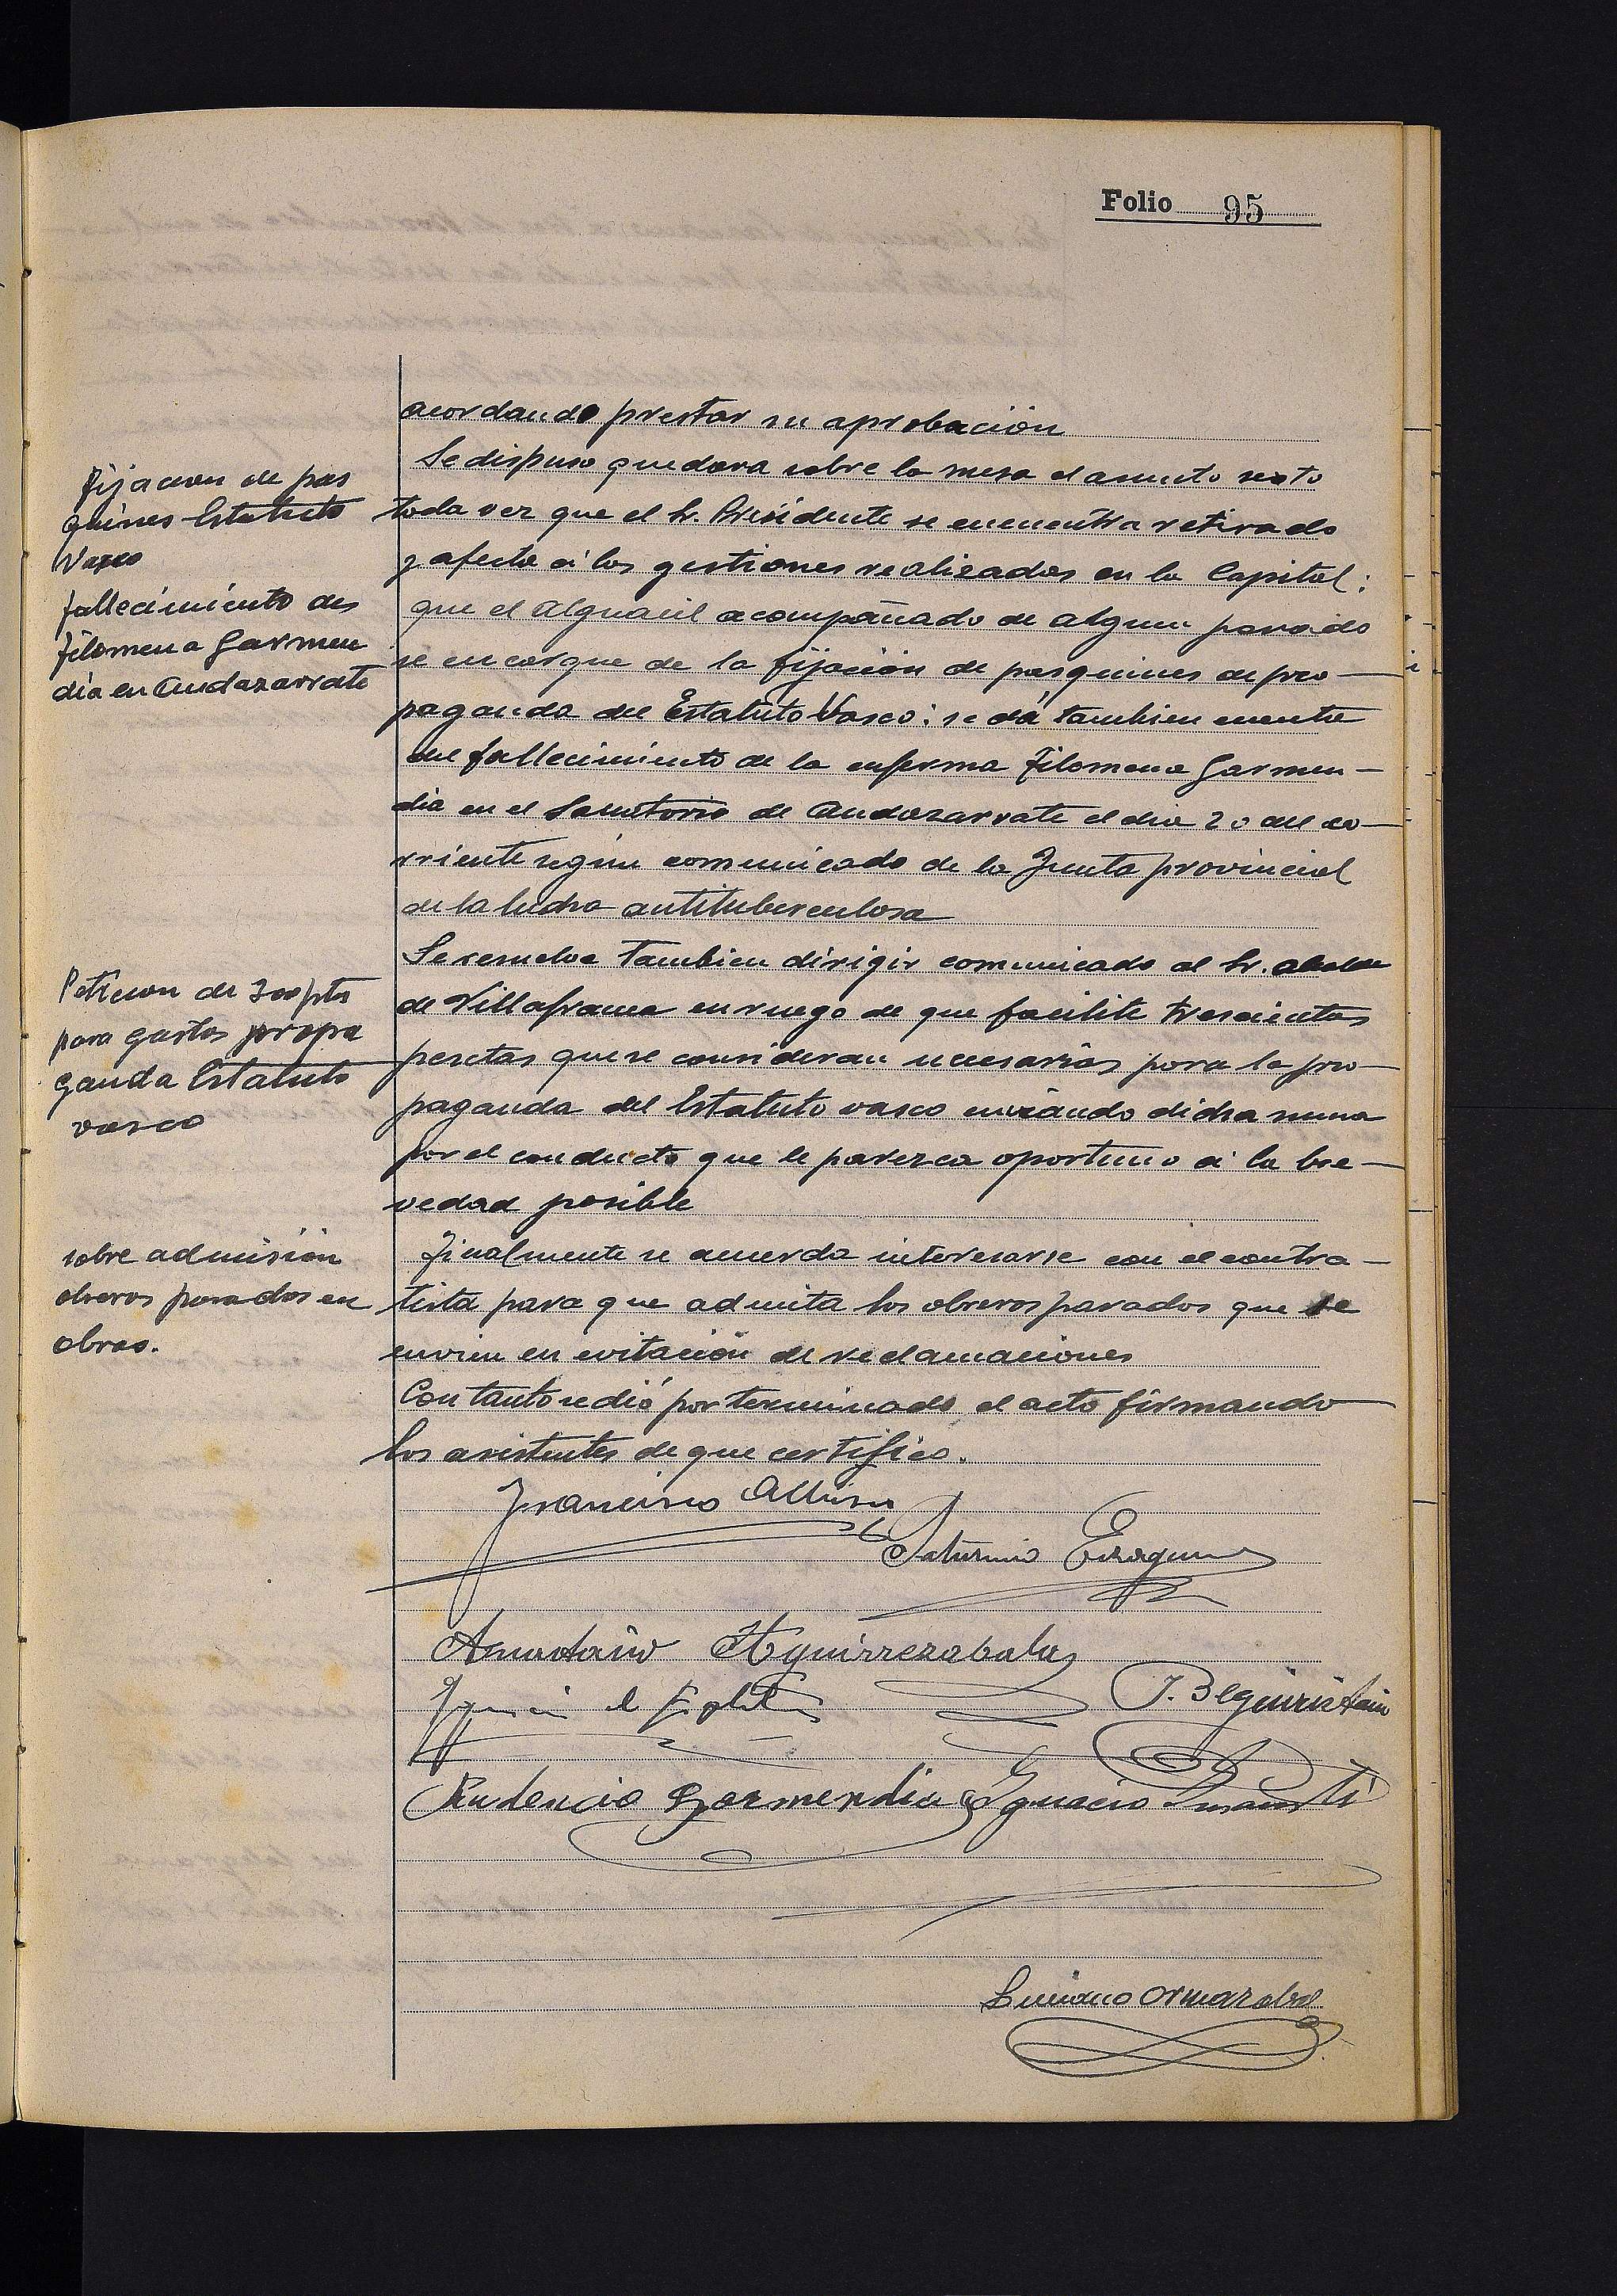 Folio 95
acordando prestar su aprobación
Fijacion de pas
quines Estatuto
Vasco
fallecimiento de
Filomena Garmen
dia en Andazarrate
Se dispuso quedara sobre la mesa el asunto sexto
toda vez que el Sr. Presidente se encuentra retirado
y afecto á las gestiones realizadas en la Capital:
que el Alguacil acompañado de algun parado
se encargue de la fijación de pasquines de pro—
paganda del Estatuto Vasco: se dá tambien cuenta
del fallecimiento de la enferma Filomena Garmen—
dia en el Sanatorio de Andazarrate el dia 20 del co—
rriente según comunicado de la Junta provincial
de la lucha antituberculosa
Peticion de 300 pts
para gastos propa
ganda Estatuto
vasco
Se resuelve tambien dirigir comunicado al Sr. alcalde
de Villafranca en ruego de que facilite trescientas
pesetas que se consideran necesarias para la pro—
paganda del Estatuto vasco enviando dicha suma
por el conducto que le parezca oportuno á la bre—
vedad posible
sobre admisión
obreros parados en
obras.
Finalmente se acuerda interesarse con el contra—
tista para que admita los obreros parados que se
envien en evitación de reclamaciones
Con tanto se dió por terminado el acto firmando
los asistentes de que certifico.
Francisco Albisu
Saturnino Eizaguirre
Aguirrezabala
J. Beguiristain
Prudencio Garmendia Ignacio
Luciano Ormazabal